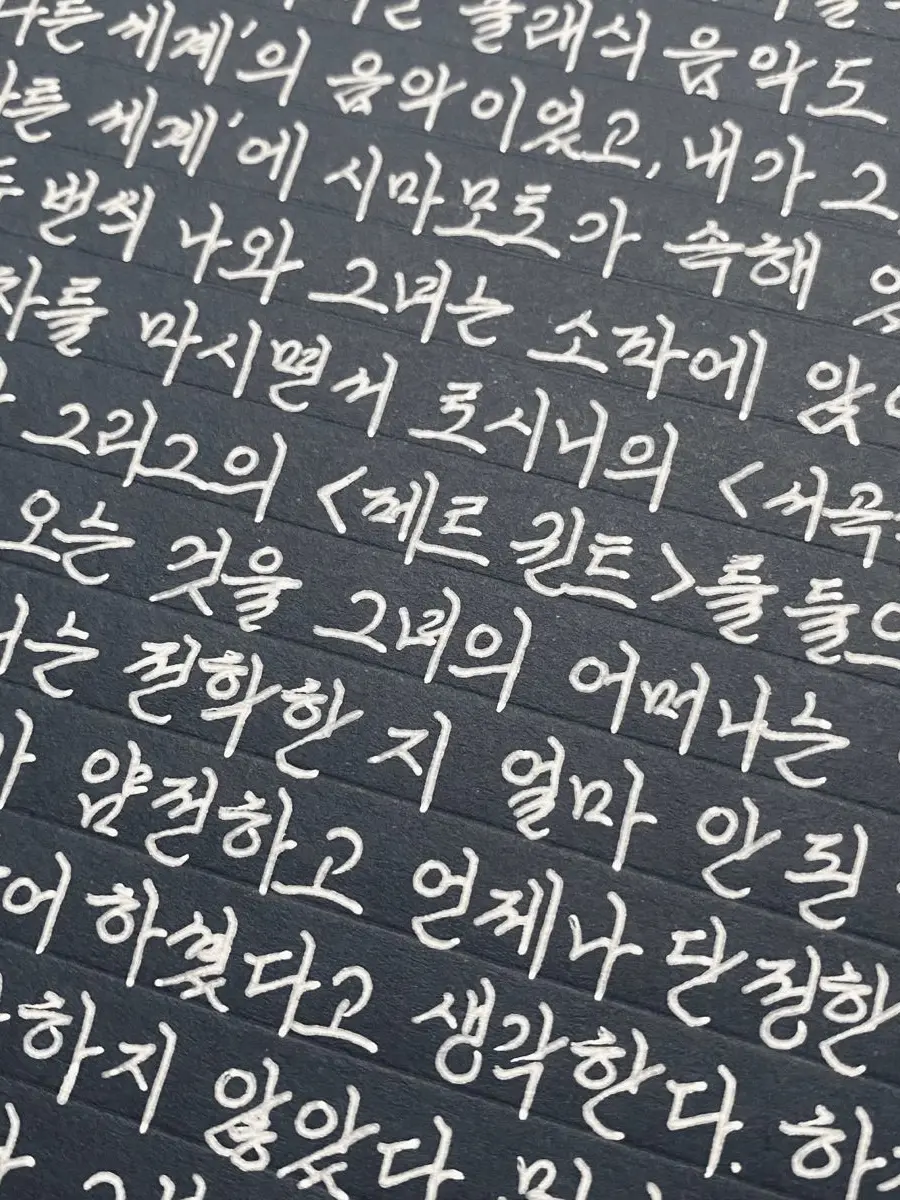 클래식 음악도
세계'의 음악이었고, 내가 그
다른 세계'에 시마모토가 속해
번씩 나와 그녀는 소파에
차를 마시면서 로시니의 <서곡
그리그의 <페르 귄트>를
오는 것을 그녀의 어머니는
전학한 지 얼마 안 된
얌전하고 언제나 단정한
하였다고 생각한다.
하지 않았다.